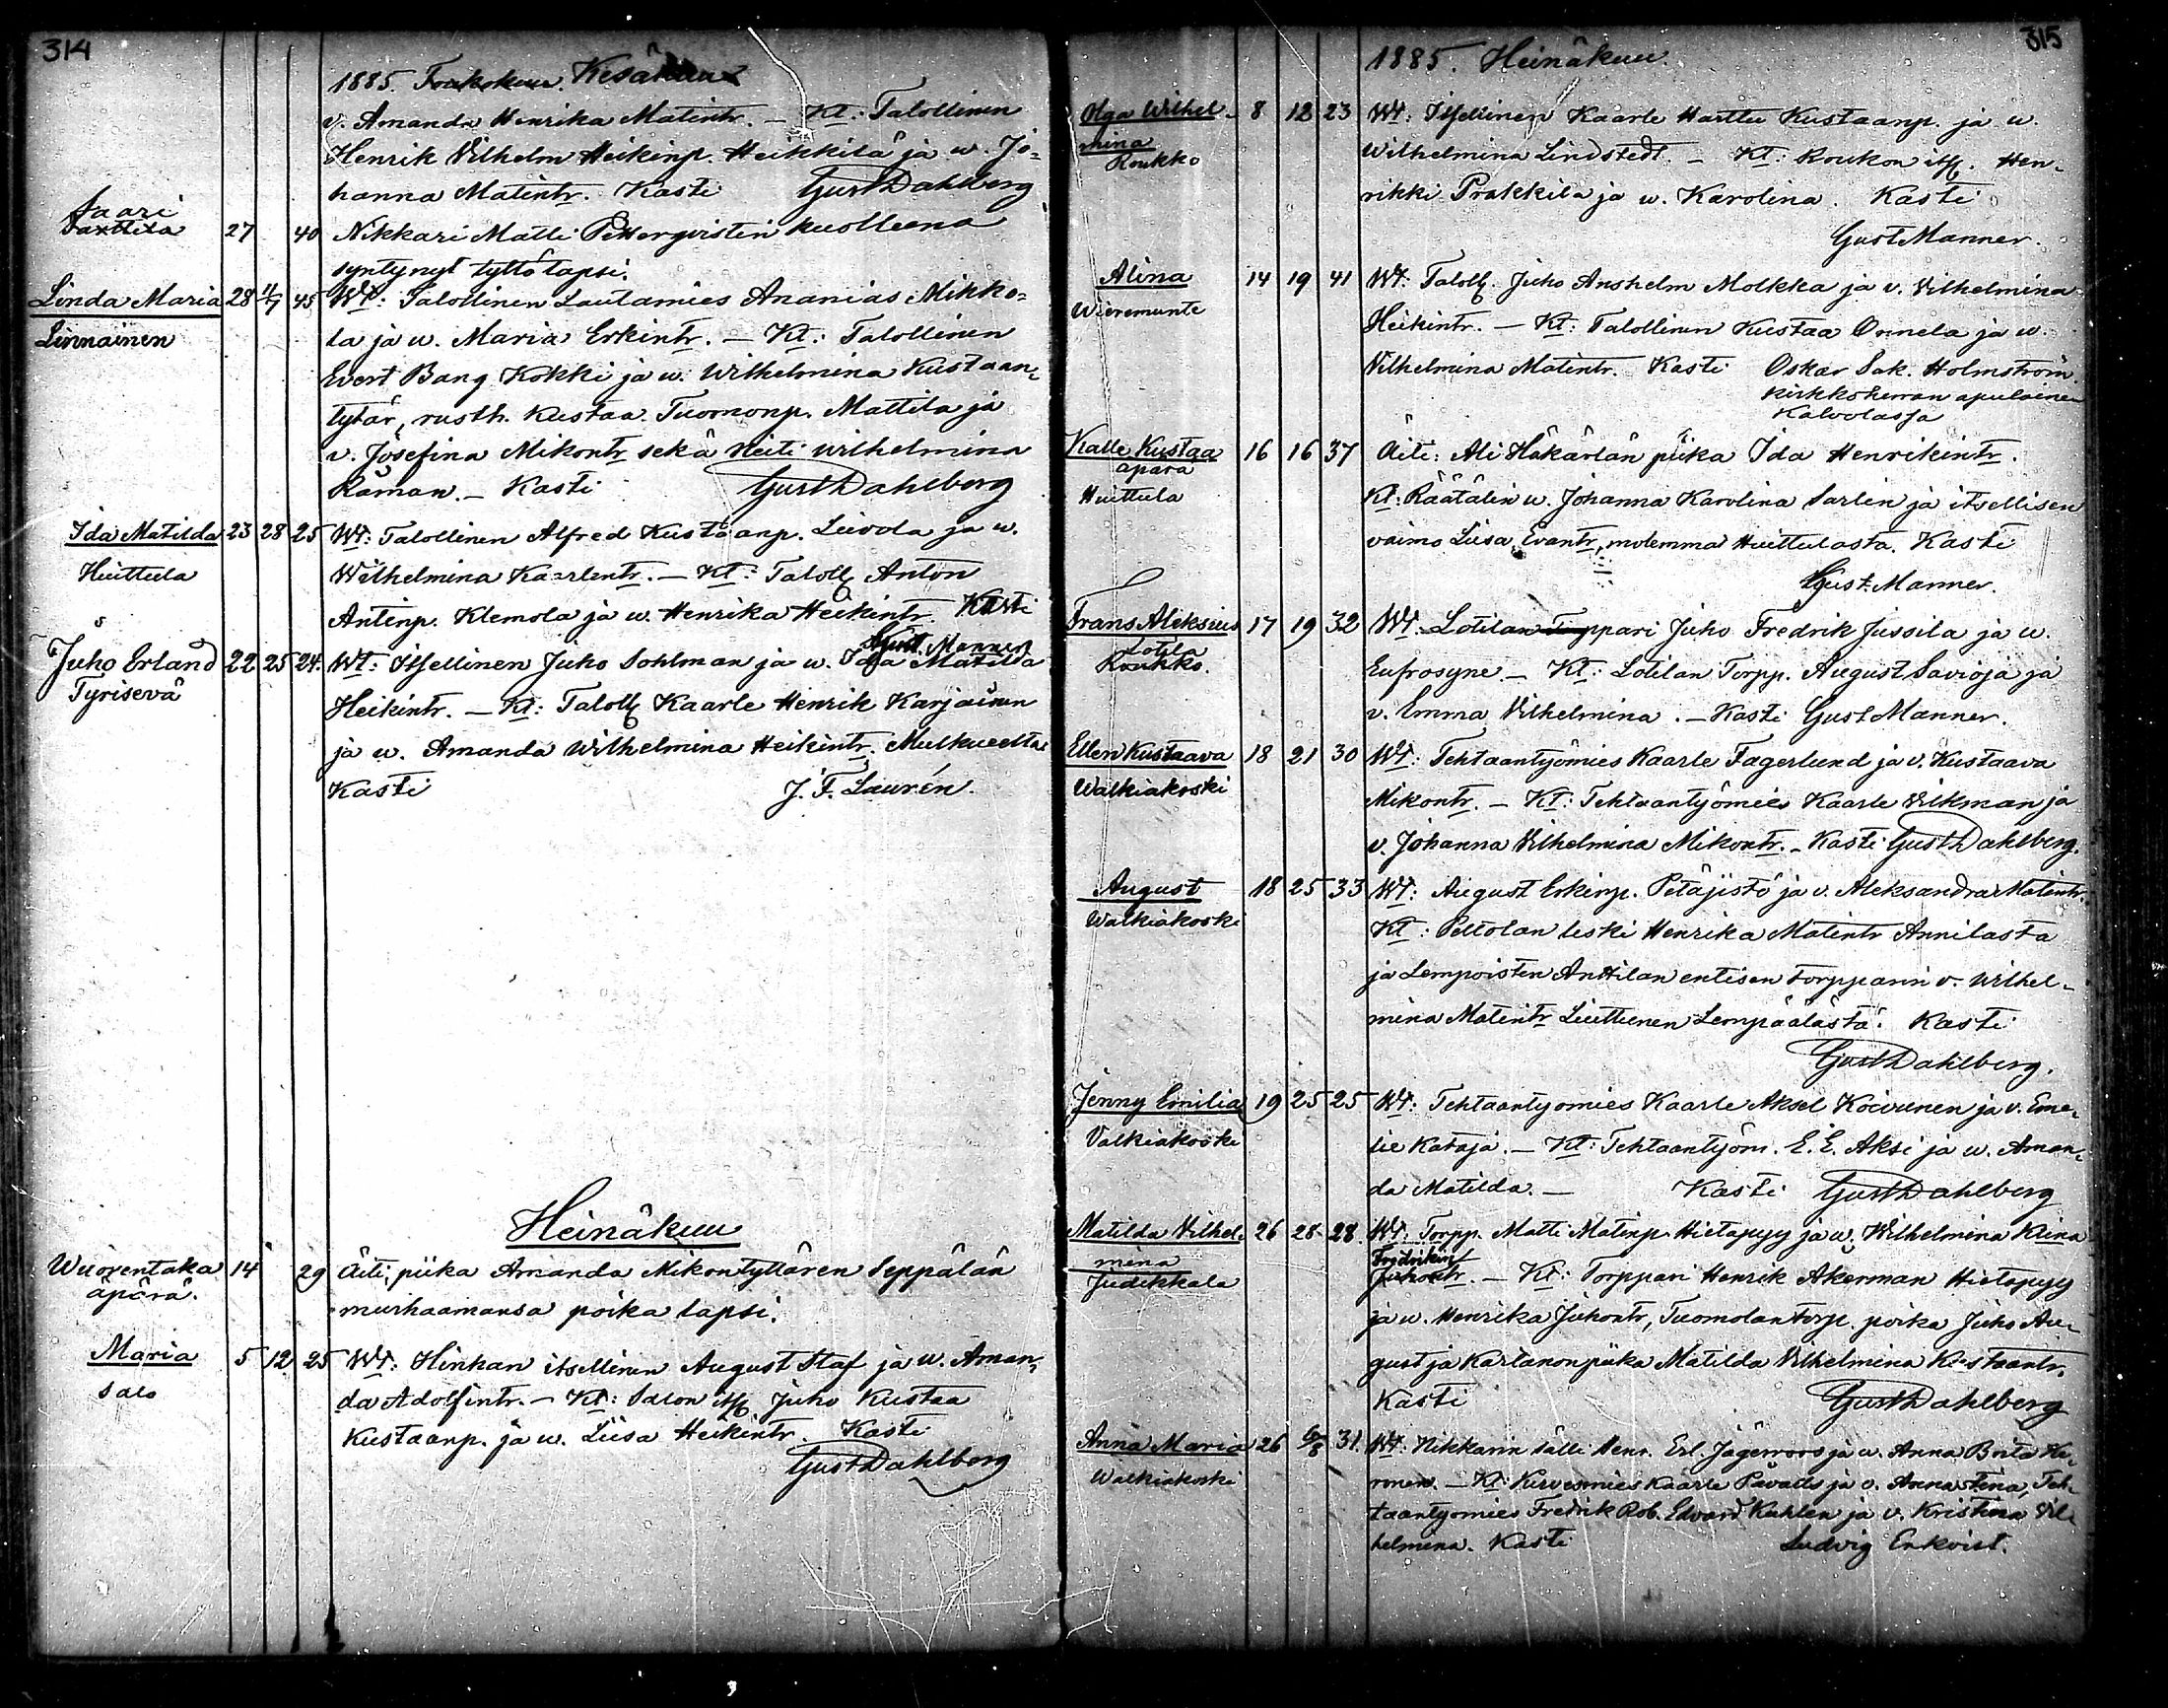 314
1885. Toukokuu. Kesäkuu
v. Amanda Henrika Matintr. – Kt.: Talollinen
Henrik Vilhelm Heikinp. Heikkilä ja w. Jo-
hanna Matintr. Kasti Gust Dahlberg
Saari
Anttila 27 40 Nikkari Matti Petterqvistin kuolleena
syntynyt tyttö lapsi.
Linda Maria 28 4/7 45 Wt: Talollinen Lautamies Ananias Mikko-
Linnainen
la ja w. Maria Erkintr. – Kt.: Talollinen
Evert Bang Kokki ja w. Wilhelmina Kustaan-
tytär, rusth. Kustaa Tuomonp. Mattila ja
v. Josefina Mikontr sekä Neiti Wilhelmina
Råman. – Kasti Gust Dahlberg
Ida Matilda 23 28 25 Wt: Talollinen Alfred Kustaanp. Liuola ja w.
Huittula
Wilhelmina Kaarlentr. – Kt: Taloll. Anton
Antinp. Klemola ja w. Henrika Heikintr. Kasti
Gust. Manner
Juho Erland 22 25 24. Wt: Itsellinen Juho Sohlman ja w. Ida Matilda
Tyrisevä
Heikintr. – Kt: Taloll. Kaarle Henrik Karjainen
ja w. Amanda Wilhelmina Heikintr.
Kasti J. F. Laurén.
Heinäkuu
Wuorentaka 14 29 Äiti, piika Amanda Mikontyttären Seppälän
äpärä.
murhaamansa poika lapsi.
Maria 5 12 25 Wt: Hinkan itsellinen August Staf ja w. Aman-
Salo
da Adolfintr. – Kt: Salon its. Juho Kustaa
Kustaanp. ja w. Liisa Heikintr. Kasti
Gust Dahlberg
315
1885. Heinäkuu.
Olga Wilhel- 8 12 23 Wt: Itsellinen Kaarle Harttu Kustaanp. ja w.
mina
Roukko
Wilhelmina Lindstedt. – Kt: Roukon its. Hen-
rikki Prakkila ja w. Karolina. Kasti
Gust Manner.
Alina 14 19 41 Wt: Taloll. Juho Anshelm Molkka ja v. Vilhelmina
Wieremunte
Heikintr. – Kt: Talollinen Kustaa Onnela ja w.
Vilhelmina Matintr. Kasti Oskar Sak. Holmström.
Kirkkoherran apulainen
Kalvolassa
Kalle Kustaa 16 16 37 Äiti: Ali Häkärlän piika Ida Henrikintr.
äpärä
Huittula
Kt: Räätälin w. Johanna Karolina Sarlin ja itsellisen
vaimo Liisa Evantr, molemmat Huittulasta. Kasti
Gust. Manner.
Frans Aleksius 17 19 32 Wt. Lotilan Torppari Juho Fredrik Jussila ja w.
Lotila
Roukko.
Eufrosyne. – Kt: Lotilan Torpp. August Savioja ja
v. Emma Vilhelmina. – Kasti Gust Manner.
Ellen Kustaava 18 21 30 Wt: Tehtaantyömies Kaarle Fagerlund ja v. Kustaava
Walkiakoski
Mikontr. – Kt: Tehtaantyömies Kaarle Vikman ja
v. Johanna Vilhelmina Mikontr. – Kasti Gust Dahlberg.
August 18 25 33 Wt: August Erkinp. Petäjistö ja v. Aleksandra Matintr.
Walkiakoski
Kt: Peltolan leski Henrika Matintr Annilasta
ja Lempoisten Anttilan entisen torpparin v. Wilhel-
mina Matintr Liuttunen Lempäälästä. Kasti
Gust Dahlberg.
Jenny Emilia 19 25 25 Wt: Tehtaantyomies Kaarle Aksel Koivunen ja v. Eme-
Valkiakoski
lie Kataja. – Kt: Tehtaantyöm. E. E. Aksi ja w. Aman-
da Matilda. – Kasti Gust Dahlberg
Matilda Vilhel- 26 28 28 Wt: Torpp. Matti Matinp. Hietapyy ja w. Wilhelmina
mina
Judikkala
Fredrikin
Juhontr. – Kt: Torppari Henrik Åkerman Hietapyy
ja w. Henrika Juhontr, Tuomolan torp. poika Juho Au-
gust ja Kartanon piika Matilda Vilhelmina Kustaantr.
Kasti Gust Dahlberg
Anna Maria 26 6/8 31. Wt: Nikkarin sälli Henr. Erl. Jägerroos ja w. Anna Brita
Walkiakoski
– Kt: Kirvesmies Kaarle ja v. Anna Stina, Teh-
taantyomies Fredrik Rob. Edvard Kahlen ja v. Kristina Vil-
helmina. Kasti Ludvig Enkvist.